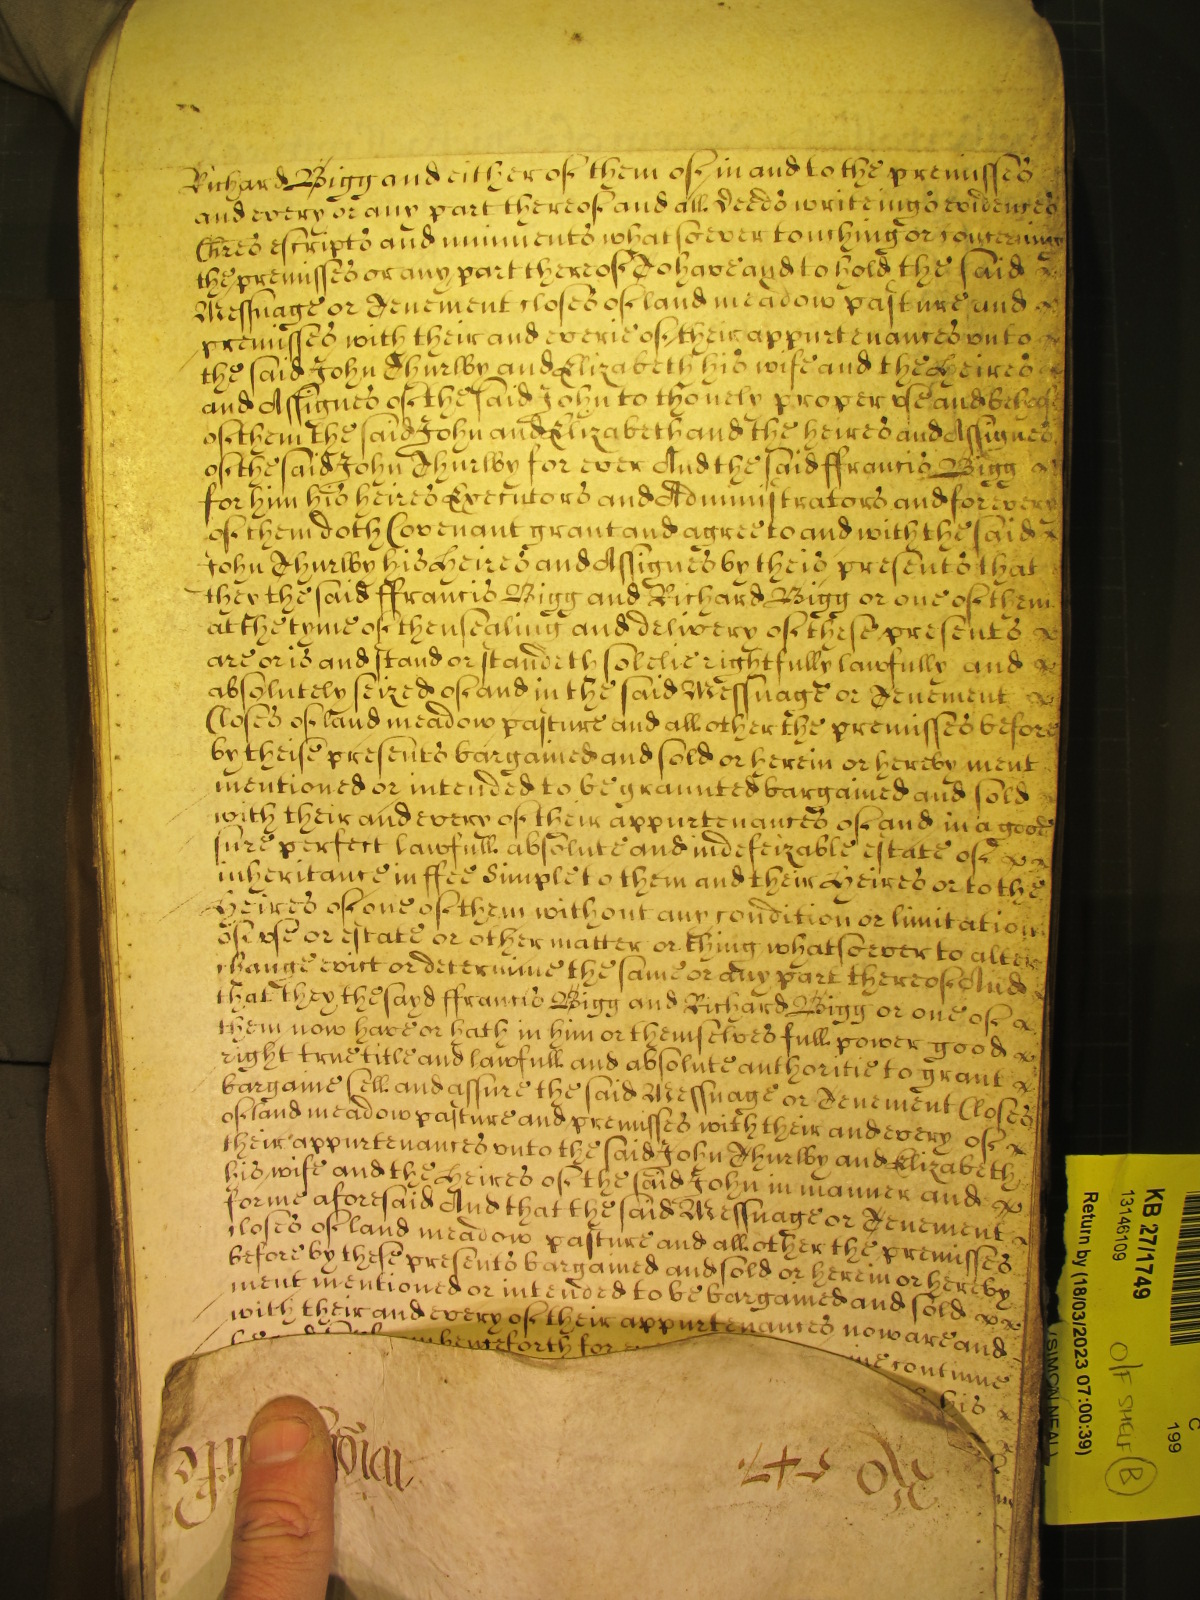 Richard Bigg and either of them of in and to the premisses
and every or any part thereof and all deedes writeings evidences
Ch̄res escripts and miniments whatsoever touching or concerning
the premisses or any part thereof To have and to hold the said
Messuage or Tenement closes of land meadow pasture and
premisses with their and everie of their appurtenances vnto
the said John Thurlby and Elizabeth his wife and the Heires
and Assignes of the said John to thonely proper vse and behoofe
of them the said John and Elizabeth and the heires and Assignes
of the said John Thurlby for ever And the said ffrancis Bigg
for him his heires Executors and Administrators and for every
of them doth Covenant grant and agree to and with the said
John Thurlby his Heires and Assignes by theis presents that
they the said ffrancis Bigg and Richard Bigg or one of them
at the tyme of thensealing and delivery of these presents
are or is and stand or standeth solelie rightfully lawfully and
absolutely seized of and in the said Messuage or Tenement
Closes of land meadow pasture and all other the premisses before
by theise presents bargained and sold or herein or hereby ment
mentioned or intended to be graunted bargained and sold
with their and every of their appurtenances of and in a good
sure perfect lawfull absolute and indefeizable estate of
inheritance in ffee Simple to them and their Heires or to the
Heires of one of them without any condition or limitation
of vse or estate or other matter or thing whatsoever to alter
change evict or determine the same or any part thereof And
that they the sayd ffrancis Bigg and Richard Bigg or one of
them now have or hath in him or themselves full power good
right true title and lawfull and absolute authoritie to grant
bargaine sell and assure the said Messuage or Tenement Closes
of land meadow pasture and premisses with their and every of
their appurtenances vnto the said John Thurlby and Elizabeth
his wife and the Heires of the said John in manner and
forme aforesaid And that the said Messuage or Tenement
closes of land meadow pasture and all other the premisses
before by these presents bargained and sold or herein or hereby
ment mentioned or intended to be bargained and sold
with their and every of their appurtenances now are and
henceforth for continue
his
Ro
KB 27/1749
13146109
Return by (18/03/2023 07:00:39)
(SIMON NEAL)
C
199
O/F SHELF B